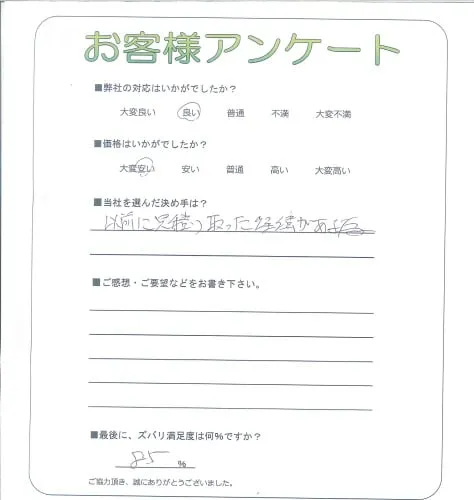 お客様アンケート
■弊社の対応はいかがでしたか？
大変良い 良い 普通 不満 大変不満
■価格はいかがでしたか？
大変安い 安い 普通 高い 大変高い
■当社を選んだ決め手は？
以前に見積り取った経緯があ
■ご感想・ご要望などをお書き下さい。
■最後に、ズバリ満足度は何%ですか？
85 %
ご協力頂き、誠にありがとうございました。